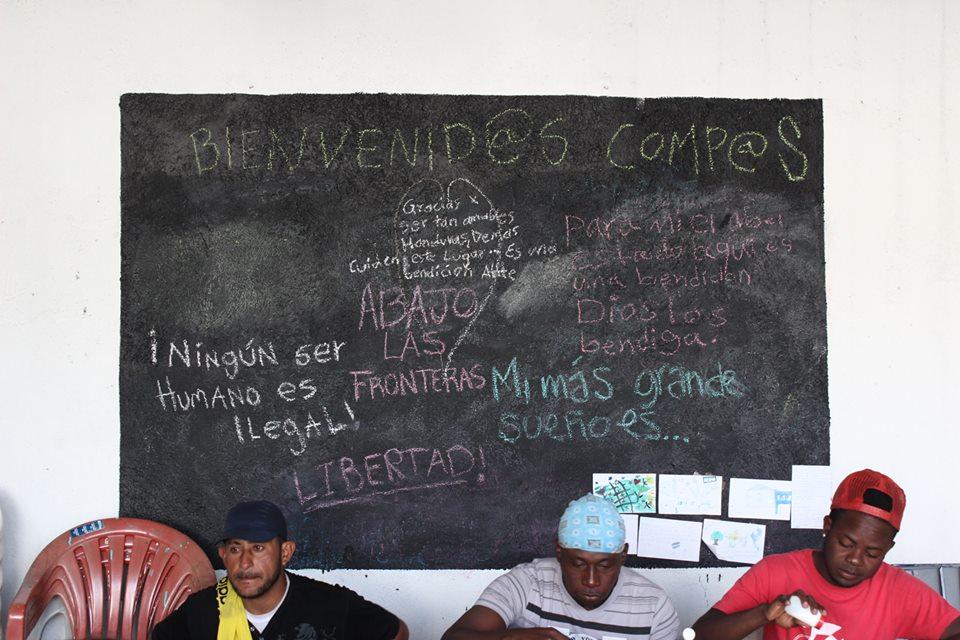 BIENVENID@S COMP@S
Gracias x
ser tan amables
Honduras, Demas
Cuiden este Lugar... Es una
bendicion Atte
Para mi El aber
estado aqui es
una bendicion
Dios los
bendiga.
ABAJO
LAS
FRONTERAS
¡NINGÚN SER
HUMANO ES
ILEGAL!
Mi más grande
sueño es...
LIBERTAD!